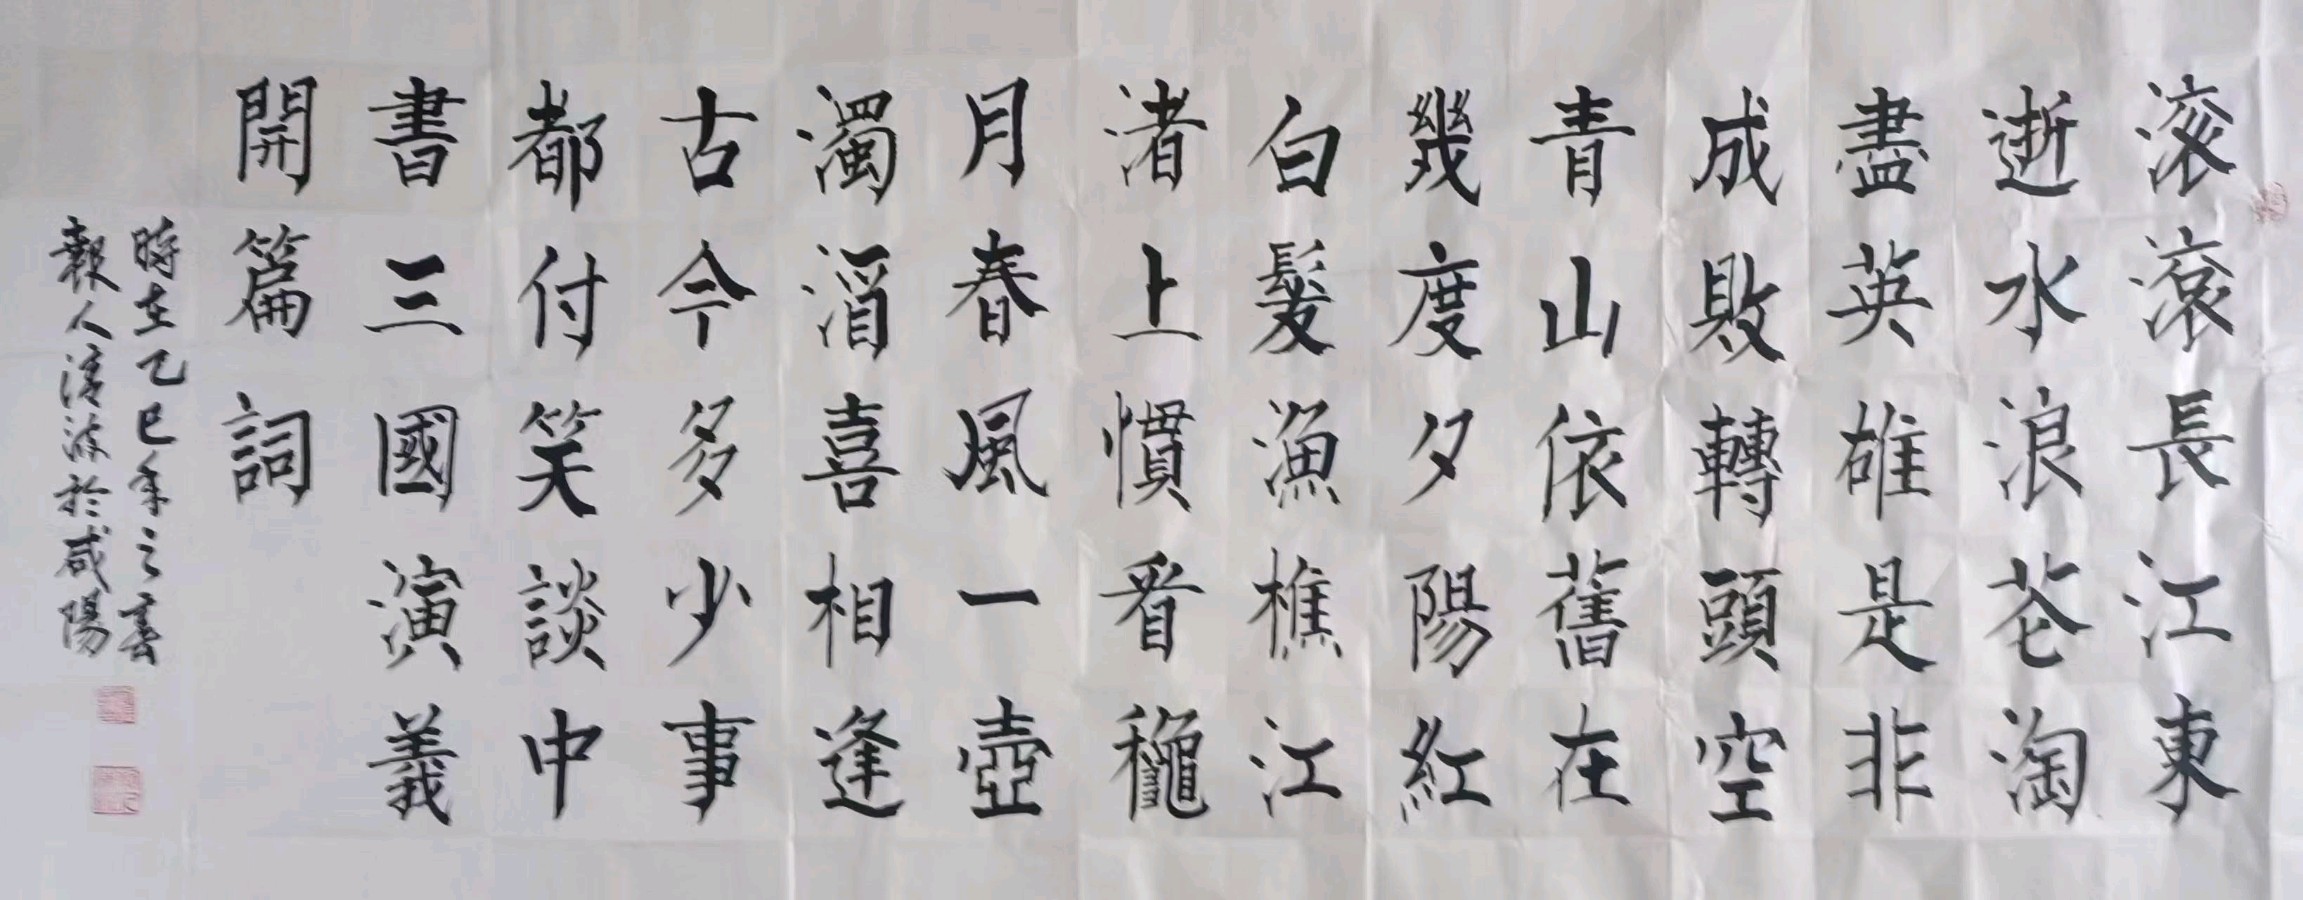 滚滾長江東
逝水浪花淘
盡英雄是非
成敗轉頭空
青山依舊在
幾度夕陽紅
白髮漁樵江
渚上慣看龝
月春風一壺
濁酒喜相逢
古今多少事
都付笑談中
書三國演義
開篇詞
時在乙巳年之春
報人清波於咸陽